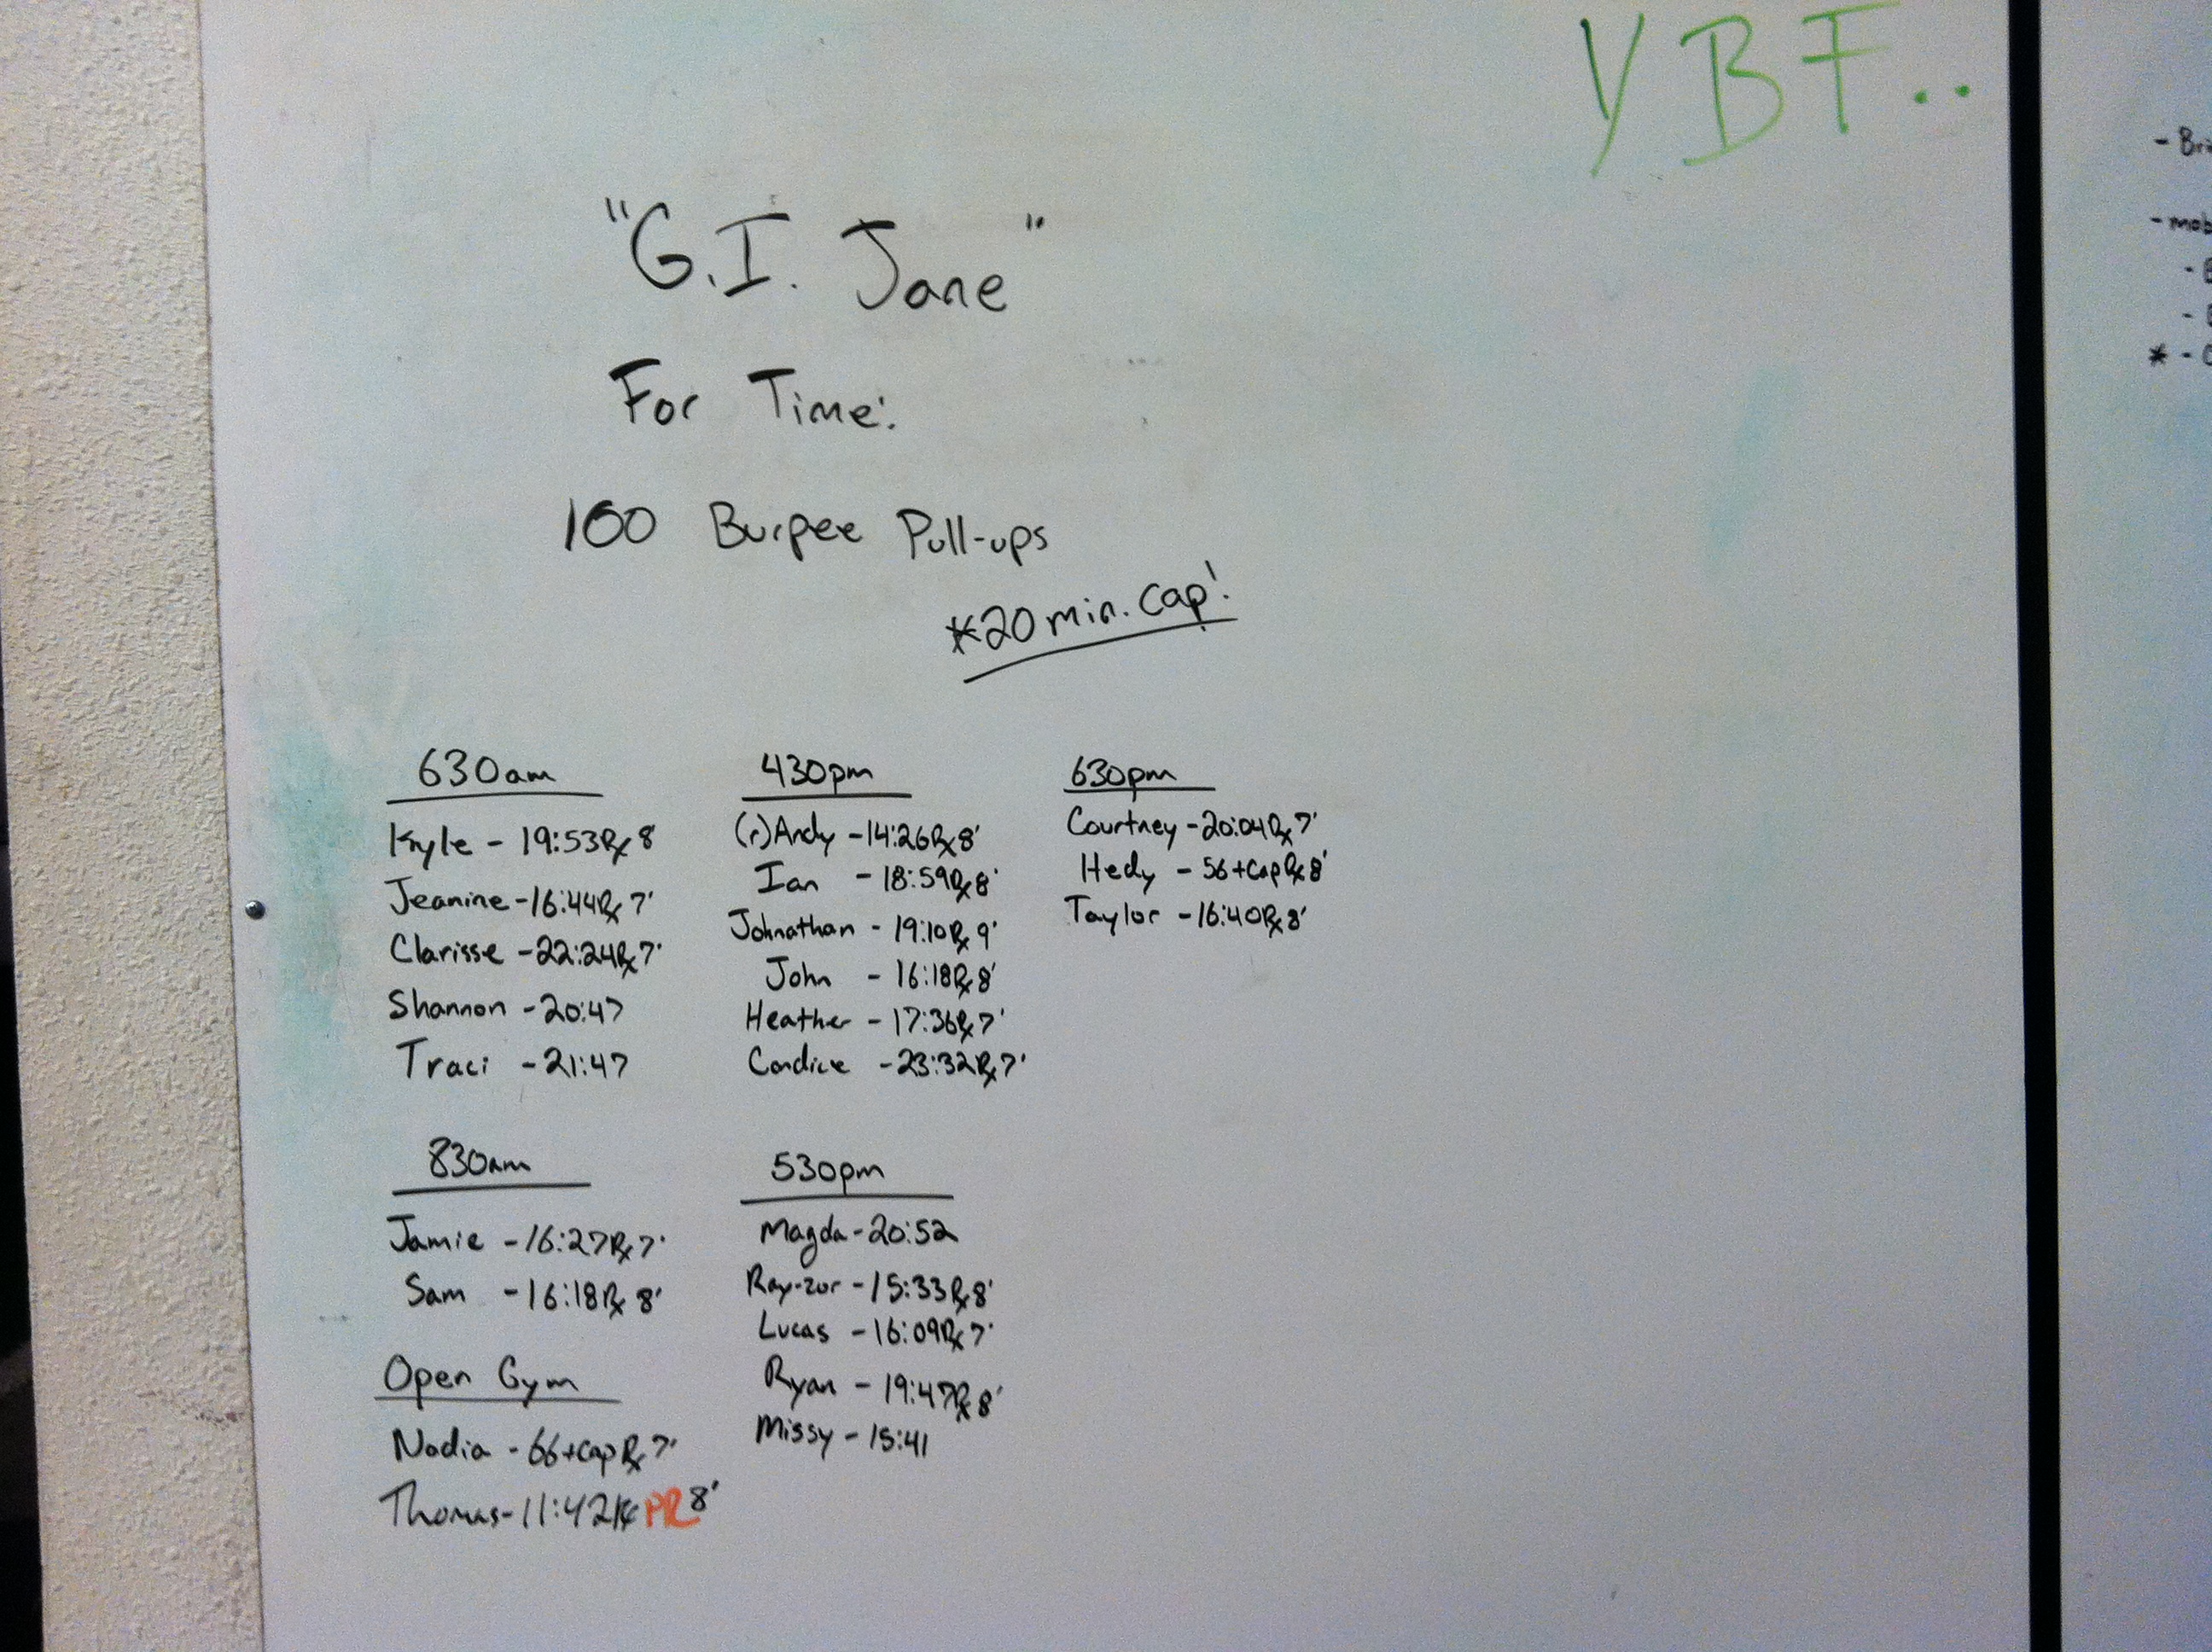 YBF..
"G.I. Jane"
For Time:
100 Burpee Pull-ups
*20 min. Cap!
630am
Kyle - 19:53 Rx 8'
Jeanine - 16:44 Rx 7'
Clarisse - 22:24 Rx 7'
Shannon - 20:47
Traci - 21:47
830am
Jamie - 16:27 Rx 7'
Sam - 16:18 Rx 8'
Open Gym
Nadia - 66+cap Rx 7'
Thomas - 11:42 Rx PR 8'
430pm
(r)Andy - 14:26 Rx 8'
Ian - 18:59 Rx 8'
Johnathan - 19:10 Rx 9'
John - 16:18 Rx 8'
Heather - 17:36 Rx 7'
Candice - 23:32 Rx 7'
530pm
Magda - 20:52
Ray-zor - 15:33 Rx 8'
Lucas - 16:09 Rx 7'
Ryan - 19:47 Rx 8'
Missy - 15:41
630pm
Courtney - 20:04 Rx 7'
Hedy - 56+Cap Rx 8'
Taylor - 16:40 Rx 8'
- Bri
- mob